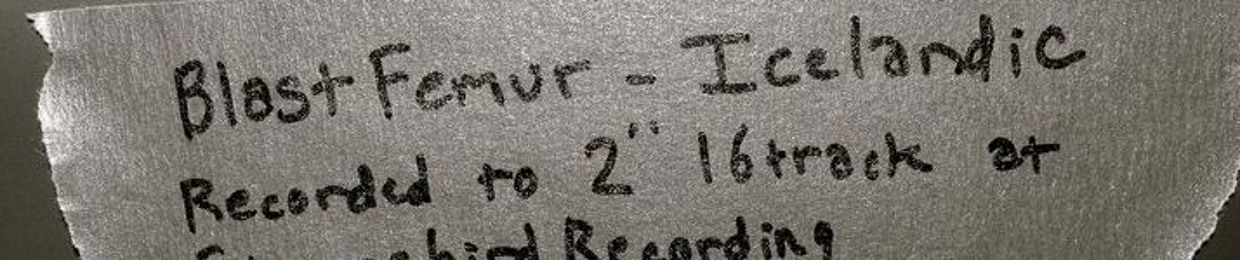 Blast Femur - Icelandic
Recorded to 2" 16track at
Recording